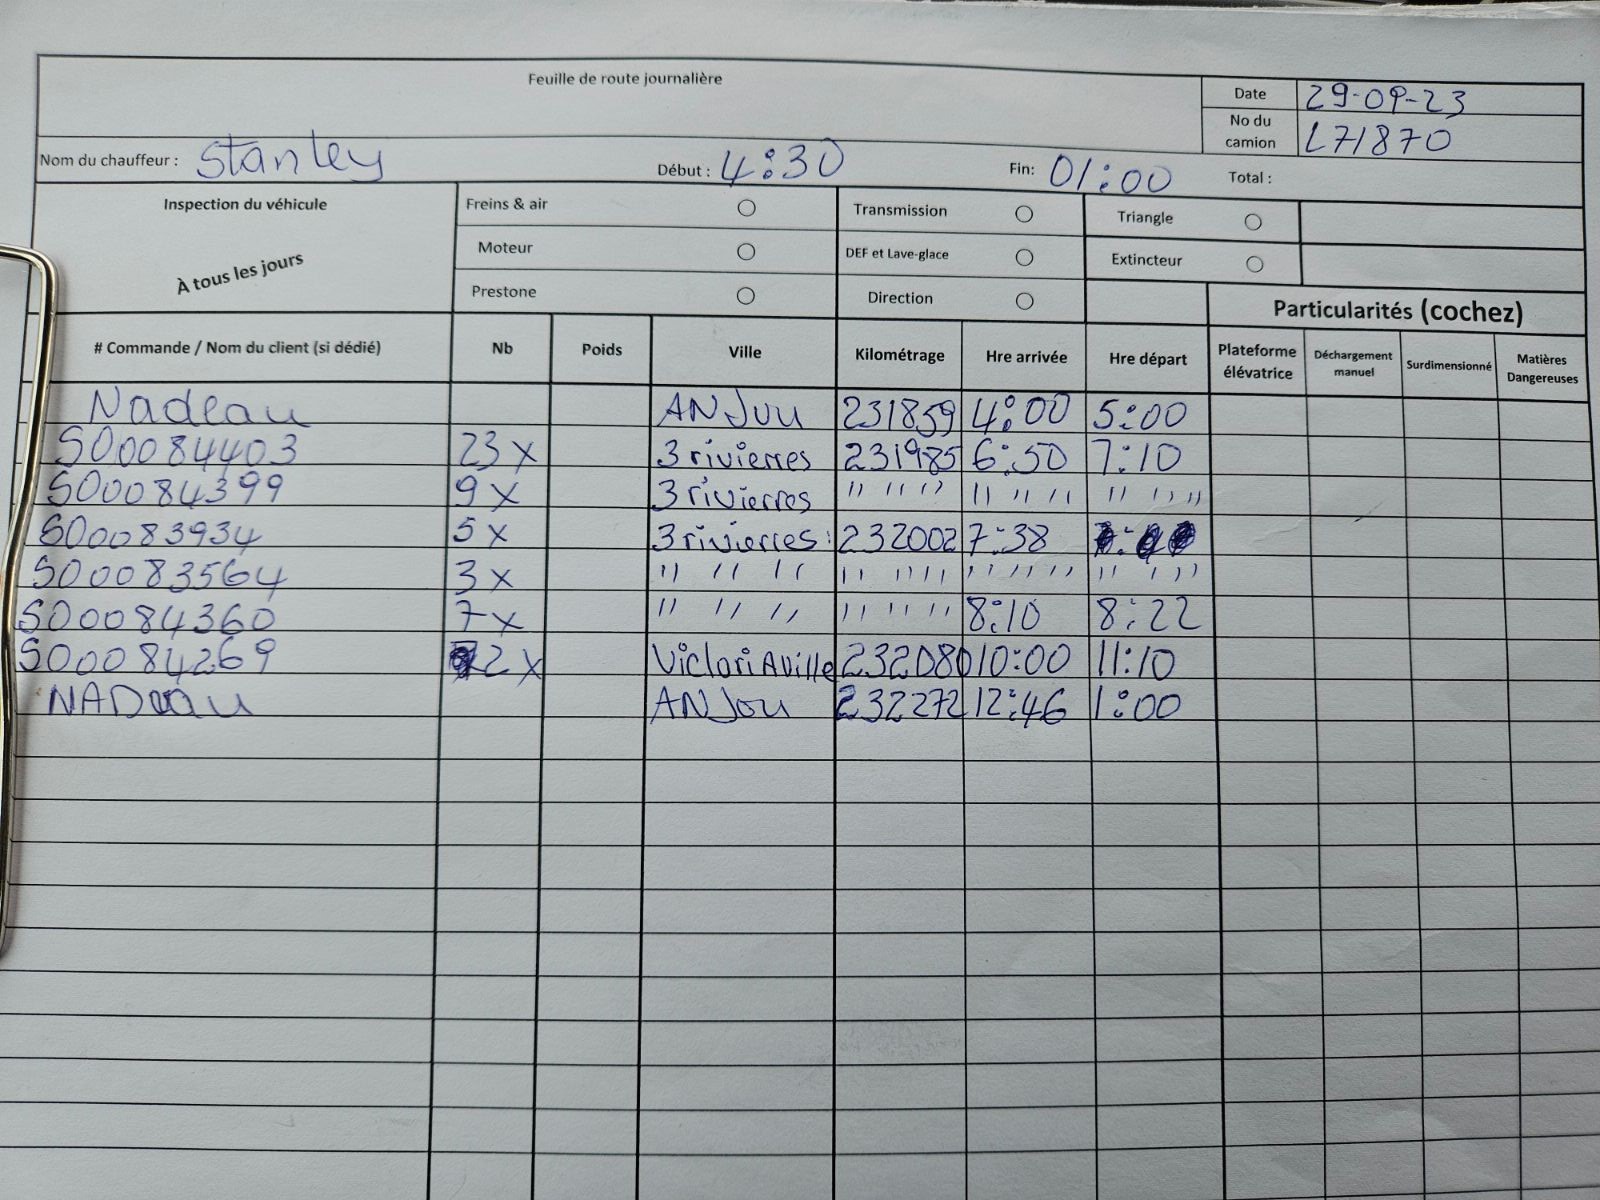 Feuille de route journalière
Date 29-09-23
No du camion L71870
Nom du chauffeur : Stanley Début : 4:30 Fin: 01:00 Total :
Inspection du véhicule
À tous les jours
Freins & air Transmission Triangle
Moteur DEF et Lave-glace Extincteur
Prestone Direction
Particularités (cochez)
# Commande / Nom du client (si dédié) Nb Poids Ville Kilométrage Hre arrivée Hre départ Plateforme élévatrice Déchargement manuel Surdimensionné Matières Dangereuses
Nadeau ANJuu 231859 4:00 5:00
S00084403 23 x 3 rivierres 231985 6:50 7:10
S00084399 9 x 3 rivierres " " " " " " " " "
S00083934 5 x 3 rivierres 232002 7:38
S00083564 3 x " " " " " " " " " " " "
S00084360 7 x " " " " " " 8:10 8:22
S00084269 2 x VicloriAville 232080 10:00 11:10
NADeau ANJou 232272 12:46 1:00